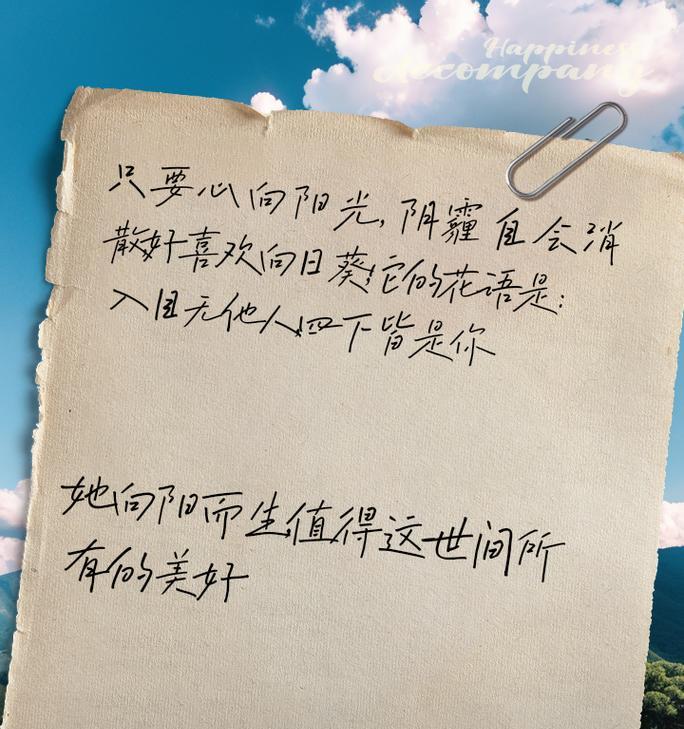 Happiness
Accompany
只要心向阳光,阴霾自会消
散好喜欢向日葵,它的花语是:
入目无他人,四下皆是你
她向阳而生,值得这世间所
有的美好